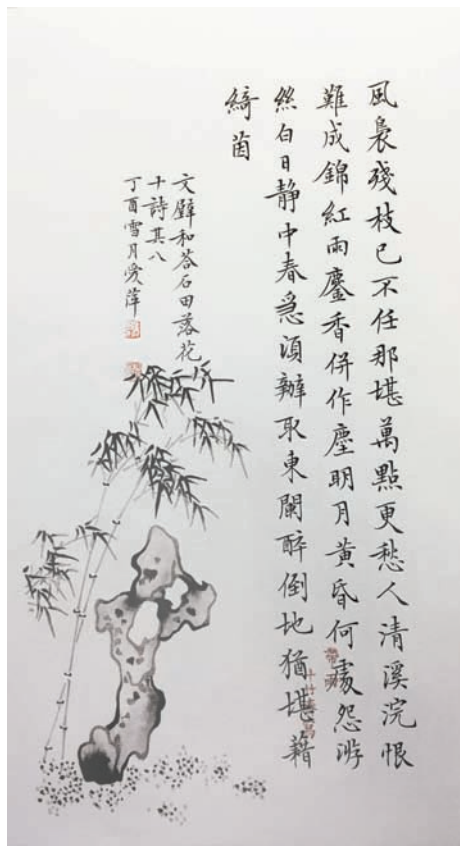 風裊殘枝已不任那堪萬點更愁人清溪浣恨
難成錦紅雨鏖香併作塵明月黃昏何處怨游
絲白日靜中春急須辦取東闌醉倒地猶堪藉
綺茵
文壁和答石田落花
十詩其八
丁酉雪月愛萍